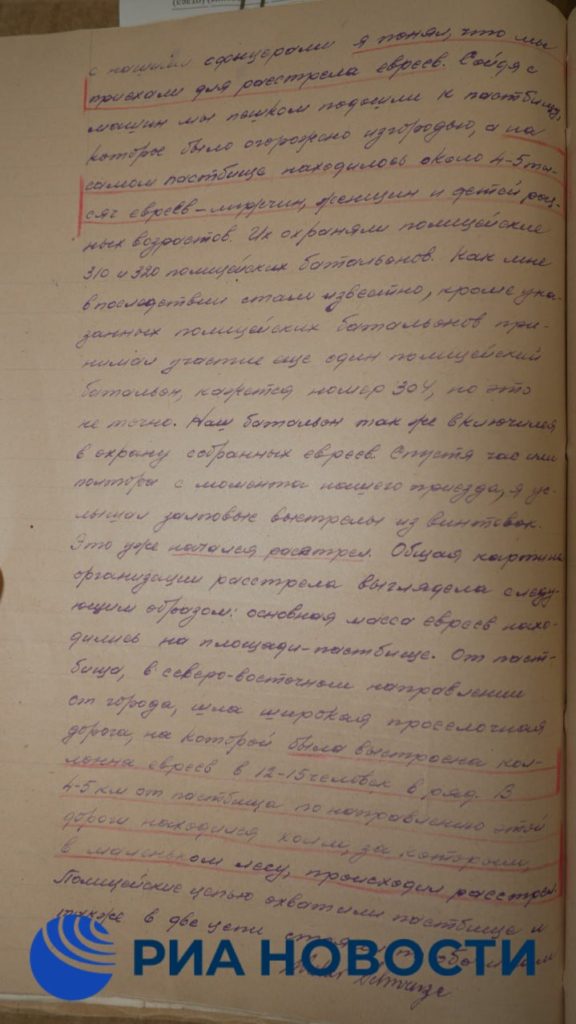 с нашими офицерами я понял, что мы
приехали для расстрела евреев. Сойдя с
машин мы пешком подошли к пастбищу,
которое было огорожено изгородью, а на
самом пастбище находилось около 4-5 ты-
сяч евреев - мужчин, женщин и детей раз-
ных возрастов. Их охраняли полицейские
310 и 320 полицейских батальонов. Как мне
впоследствии стало известно, кроме ука-
занных полицейских батальонов при-
нимал участие еще один полицейский
батальон, кажется номер 304, но это
не точно. Наш батальон так же включился
в охрану собранных евреев. Спустя час или
полтора с момента нашего приезда, я ус-
лышал залповые выстрелы из винтовок.
Это уже начался расстрел. Общая картина
организации расстрела выглядела следу-
ющим образом: основная масса евреев нахо-
дились на площади-пастбище. От паст-
бища, в северо-восточном направлении
от города, шла широкая проселочная
дорога, на которой была выстроена кол-
лонна евреев в 12-15 человек в ряд. В
4-5 км от пастбища по направлению этой
дороги находился холм, за которым,
в маленьком лесу, происходил расстрел.
Полицейские цепью охватили пастбище и
также в две цепи
РИА НОВОСТИ